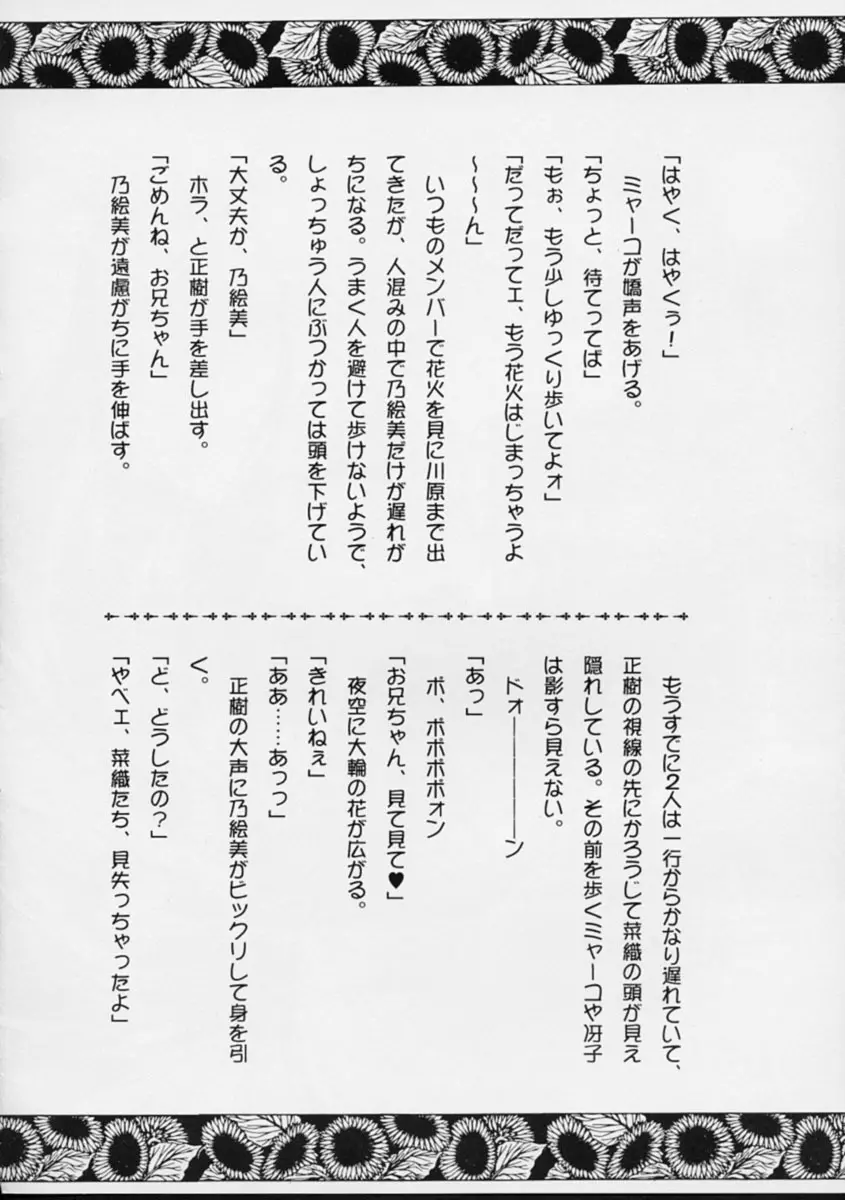 「はやく、はやくぅ！」
ミャーコが嬌声をあげる。
「ちょっと、待てってば」
「もぉ、もう少しゆっくり歩いてよォ」
「だってだってェ、もう花火はじまっちゃうよ
～～～ん」
いつものメンバーで花火を見に川原まで出
てきたが、人混みの中で乃絵美だけが遅れが
ちになる。うまく人を避けて歩けないようで、
しょっちゅう人にぶつかっては頭を下げてい
る。
「大丈夫か、乃絵美」
ホラ、と正樹が手を差し出す。
「ごめんね、お兄ちゃん」
乃絵美が遠慮がちに手を伸ばす。
もうすでに2人は一行からかなり遅れていて、
正樹の視線の先にかろうじて菜織の頭が見え
隠れしている。その前を歩くミャーコや冴子
は影すら見えない。
ドォ―――――ン
「あっ」
ボ、ボボボボォン
「お兄ちゃん、見て見て♥」
夜空に大輪の花が広がる。
「きれいねぇ」
「ああ……あっっ」
正樹の大声に乃絵美がビックリして身を引
く。
「ど、どうしたの？」
「やベェ、菜織たち、見失っちゃったよ」